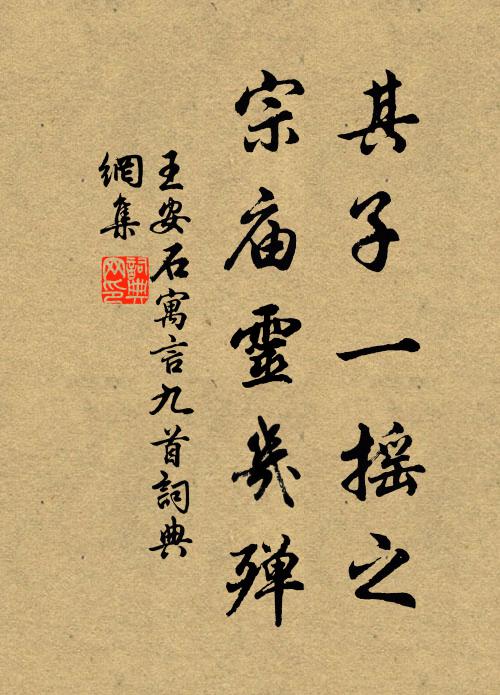 其子一摇之
宗庙靈幾殫
王安石寓言九首詞典
網集
詞典
网印